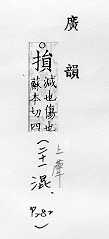 廣韻
○損減也傷也
蘇本切四
上聲
(二十一混
P282)